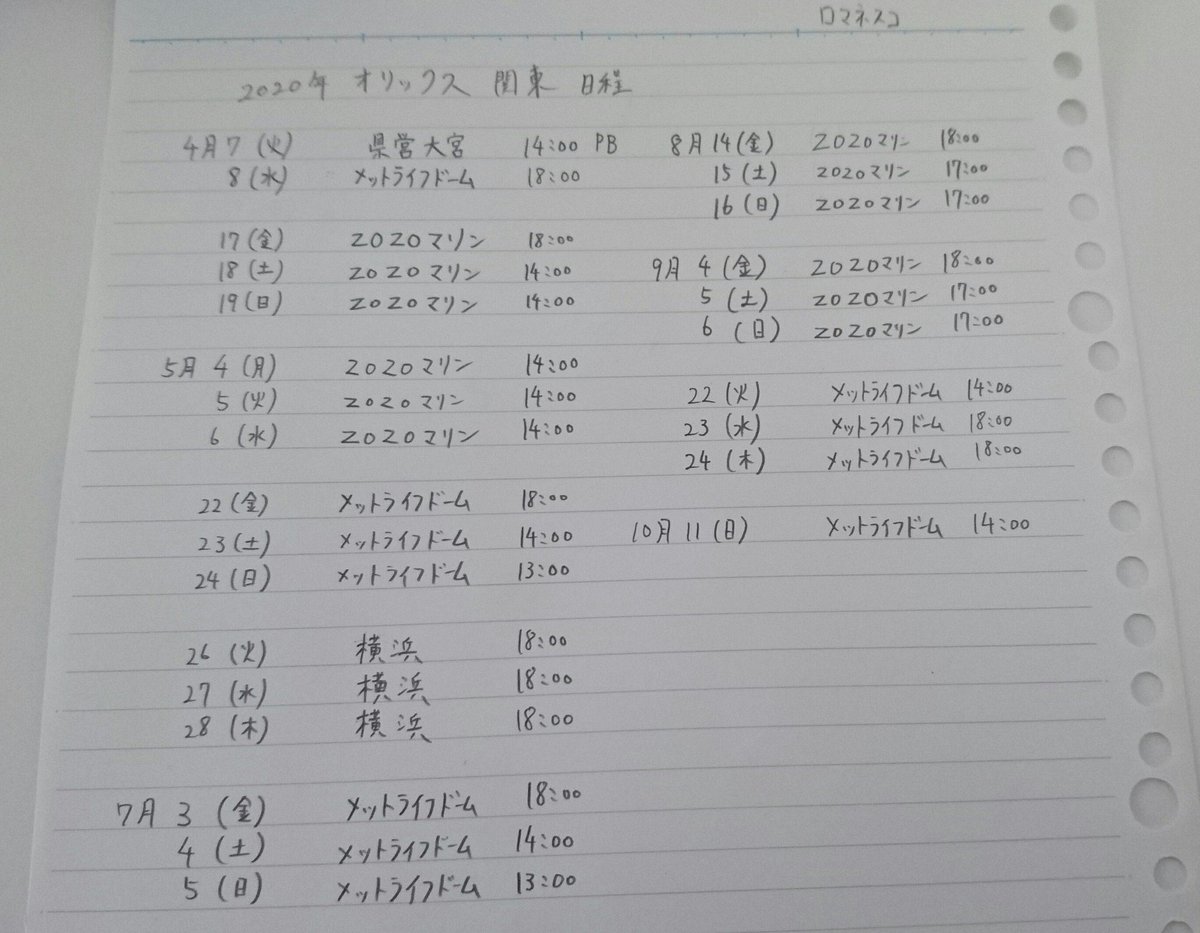 ロマネスコ
2020年 オリックス 関東 日程
4月7(火) 県営大宮 14:00 PB
8(水) メットライフドーム 18:00
17(金) ZOZOマリン 18:00
18(土) ZOZOマリン 14:00
19(日) ZOZOマリン 14:00
5月4(月) ZOZOマリン 14:00
5(火) ZOZOマリン 14:00
6(水) ZOZOマリン 14:00
22(金) メットライフドーム 18:00
23(土) メットライフドーム 14:00
24(日) メットライフドーム 13:00
26(火) 横浜 18:00
27(水) 横浜 18:00
28(木) 横浜 18:00
7月3(金) メットライフドーム 18:00
4(土) メットライフドーム 14:00
5(日) メットライフドーム 13:00
8月14(金) ZOZOマリン 18:00
15(土) ZOZOマリン 17:00
16(日) ZOZOマリン 17:00
9月4(金) ZOZOマリン 18:00
5(土) ZOZOマリン 17:00
6(日) ZOZOマリン 17:00
22(火) メットライフドーム 14:00
23(水) メットライフドーム 18:00
24(木) メットライフドーム 18:00
10月11(日) メットライフドーム 14:00